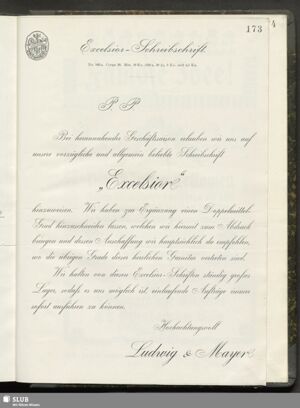 173
Excelsior-Schreibschrift
P. P.
Bei herannahender Geschäftssaison erlauben wir uns auf
unsere vorzügliche und allgemein beliebte Schreibschrift
„Excelsior“
hinzuweisen. Wir haben zur Ergänzung einen Doppelmittel-
Grad hinzuschneiden lassen, welchen wir hiermit zum Abdruck
bringen und dessen Anschaffung wir hauptsächlich da empfehlen,
wo die übrigen Grade dieser herrlichen Garnitur vertreten sind.
Wir halten von diesen Excelsior-Schriften ständig großes
Lager, sodaß es uns möglich ist einlaufende Aufträge immer
sofort ausführen zu können.
Hochachtungsvoll
Ludwig & Mayer
SLUB
Wir führen Wissen.